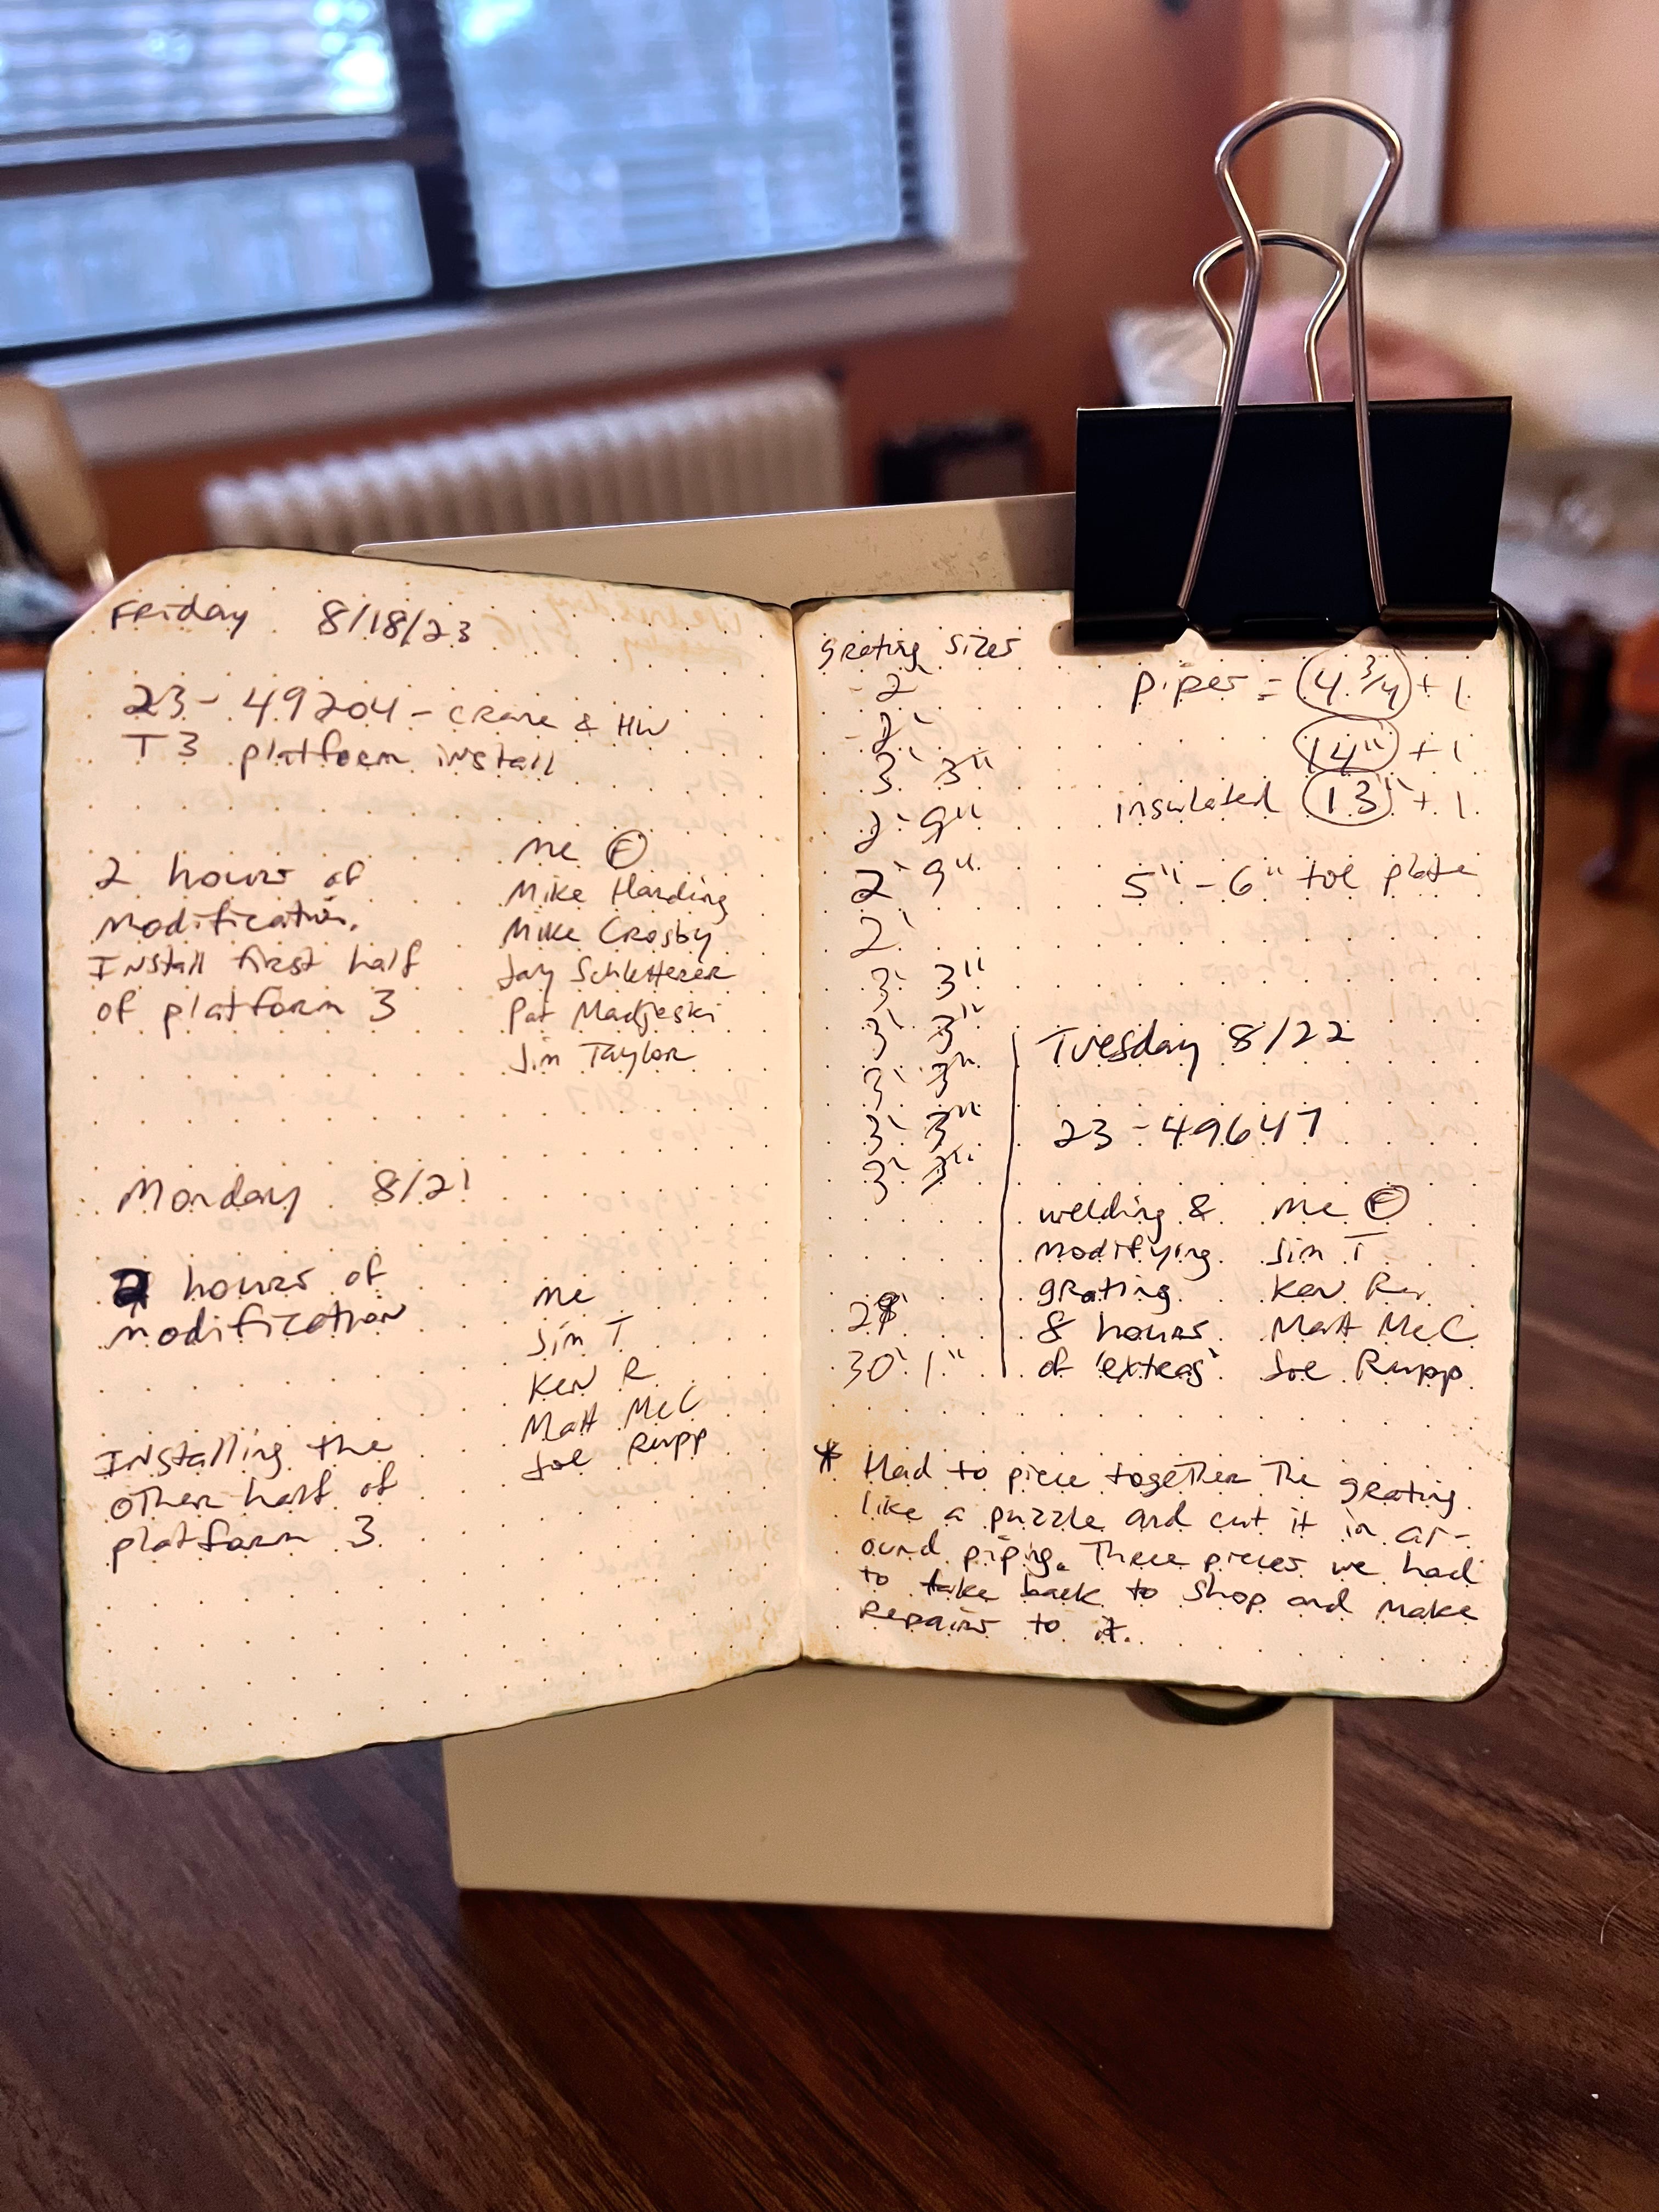 Friday 8/18/23
23-49204 - crane & HW
T3 platform install
2 hours of
modification.
Install first half
of platform 3
me Ⓕ
Mike Harding
Mike Crosby
Jay Schletterer
Pat Madjeski
Jim Taylor
Monday 8/21
2 hours of
modification
Installing the
other half of
platform 3
me
Jim T
Ken R
Matt McC
Joe Rupp
grating sizes
- 2'
- 2'
3' 3"
2' 9"
2' 9"
2'
3' 3"
3' 3"
3' 3"
3' 3"
3' 3"
30' 1"
pipes = 4 3/4 + 1
14" + 1
insulated 13" + 1
5" - 6" toe plate
Tuesday 8/22
23-49647
welding &
modifying
grating
8 hours
of 'extras'
me Ⓕ
Jim T
Ken
Matt McC
Joe Rupp
* Had to piece together the grating
like a puzzle and cut it in ar-
ound piping. Three pieces we had
to take back to shop and make
repairs to it.